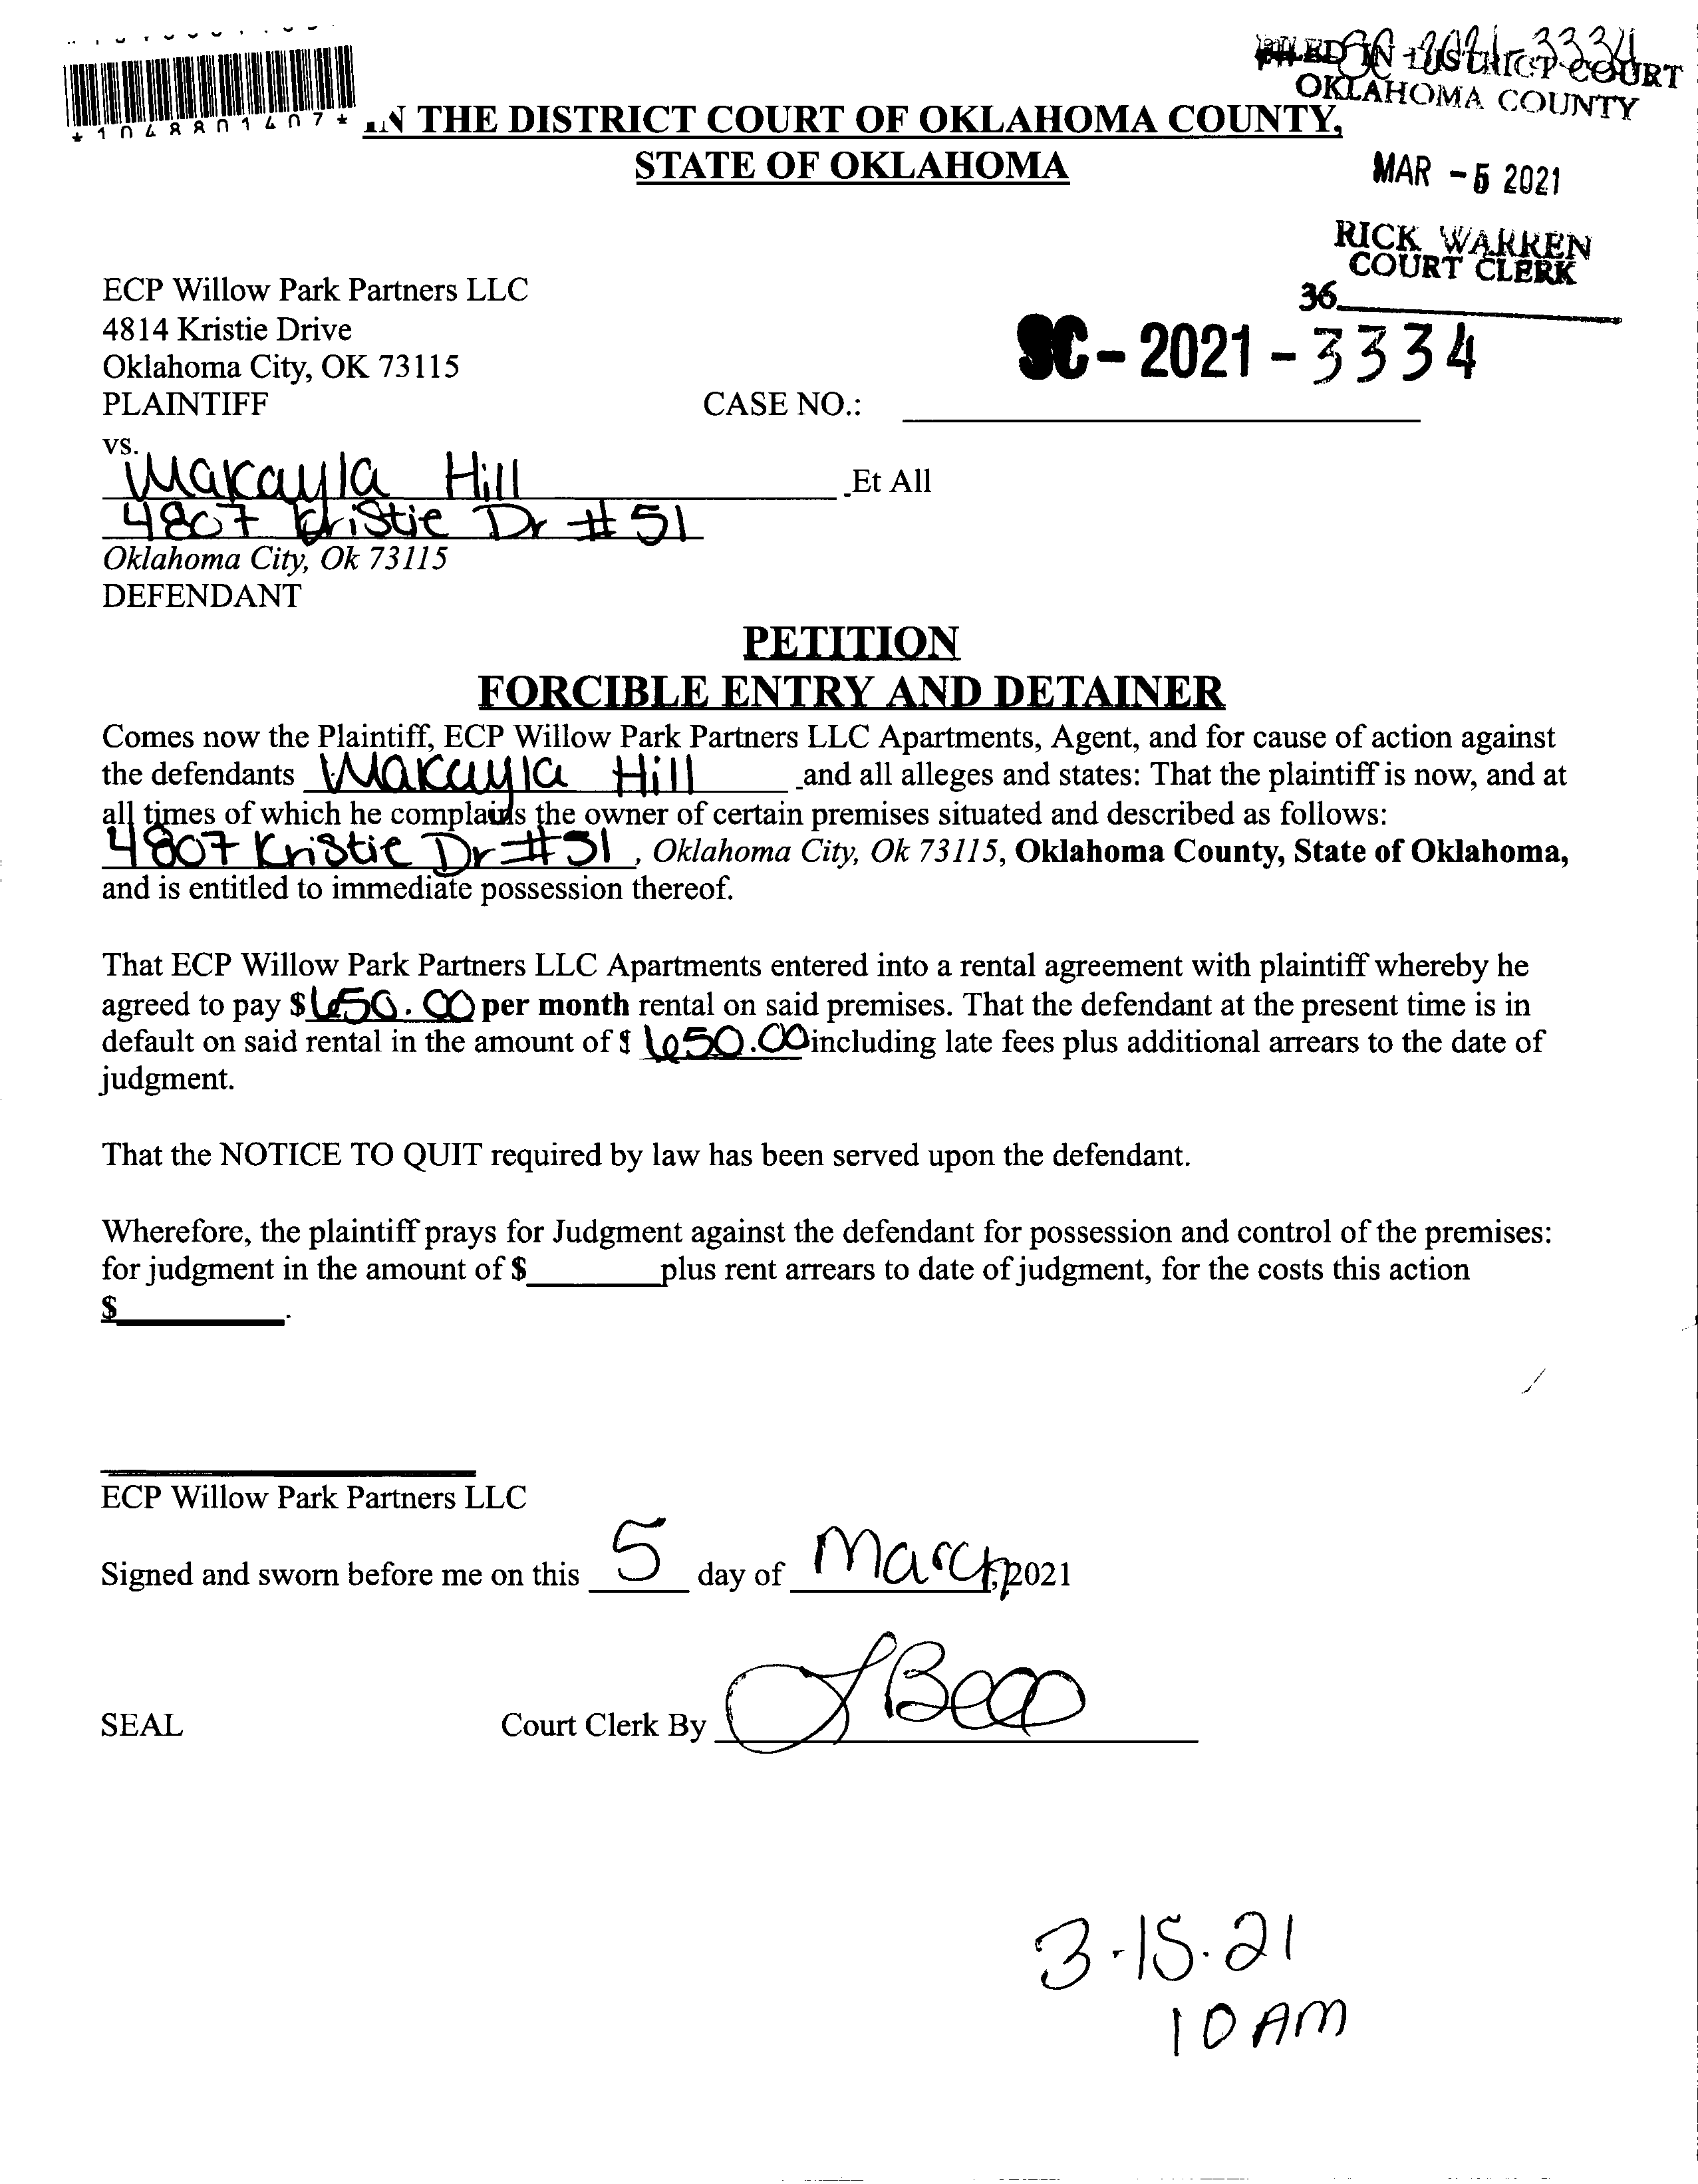 SC-2021-3334
FILED IN DISTRICT COURT
OKLAHOMA COUNTY
*1048801407*
IN THE DISTRICT COURT OF OKLAHOMA COUNTY,
STATE OF OKLAHOMA
MAR -5 2021
RICK WARREN
COURT CLERK
36
ECP Willow Park Partners LLC
4814 Kristie Drive
Oklahoma City, OK 73115
PLAINTIFF
CASE NO.: SC-2021-3334
vs.
Makayla Hill Et All
4807 Kristie Dr #51
Oklahoma City, Ok 73115
DEFENDANT
PETITION
FORCIBLE ENTRY AND DETAINER
Comes now the Plaintiff, ECP Willow Park Partners LLC Apartments, Agent, and for cause of action against
the defendants Makayla Hill and all alleges and states: That the plaintiff is now, and at
all times of which he complains the owner of certain premises situated and described as follows:
4807 Kristie Dr #51, Oklahoma City, Ok 73115, Oklahoma County, State of Oklahoma,
and is entitled to immediate possession thereof.
That ECP Willow Park Partners LLC Apartments entered into a rental agreement with plaintiff whereby he
agreed to pay $650.00 per month rental on said premises. That the defendant at the present time is in
default on said rental in the amount of $ 650.00 including late fees plus additional arrears to the date of
judgment.
That the NOTICE TO QUIT required by law has been served upon the defendant.
Wherefore, the plaintiff prays for Judgment against the defendant for possession and control of the premises:
for judgment in the amount of $________plus rent arrears to date of judgment, for the costs this action
$__________.
ECP Willow Park Partners LLC
Signed and sworn before me on this 5 day of March, 2021
SEAL Court Clerk By
3-15-21
10 AM